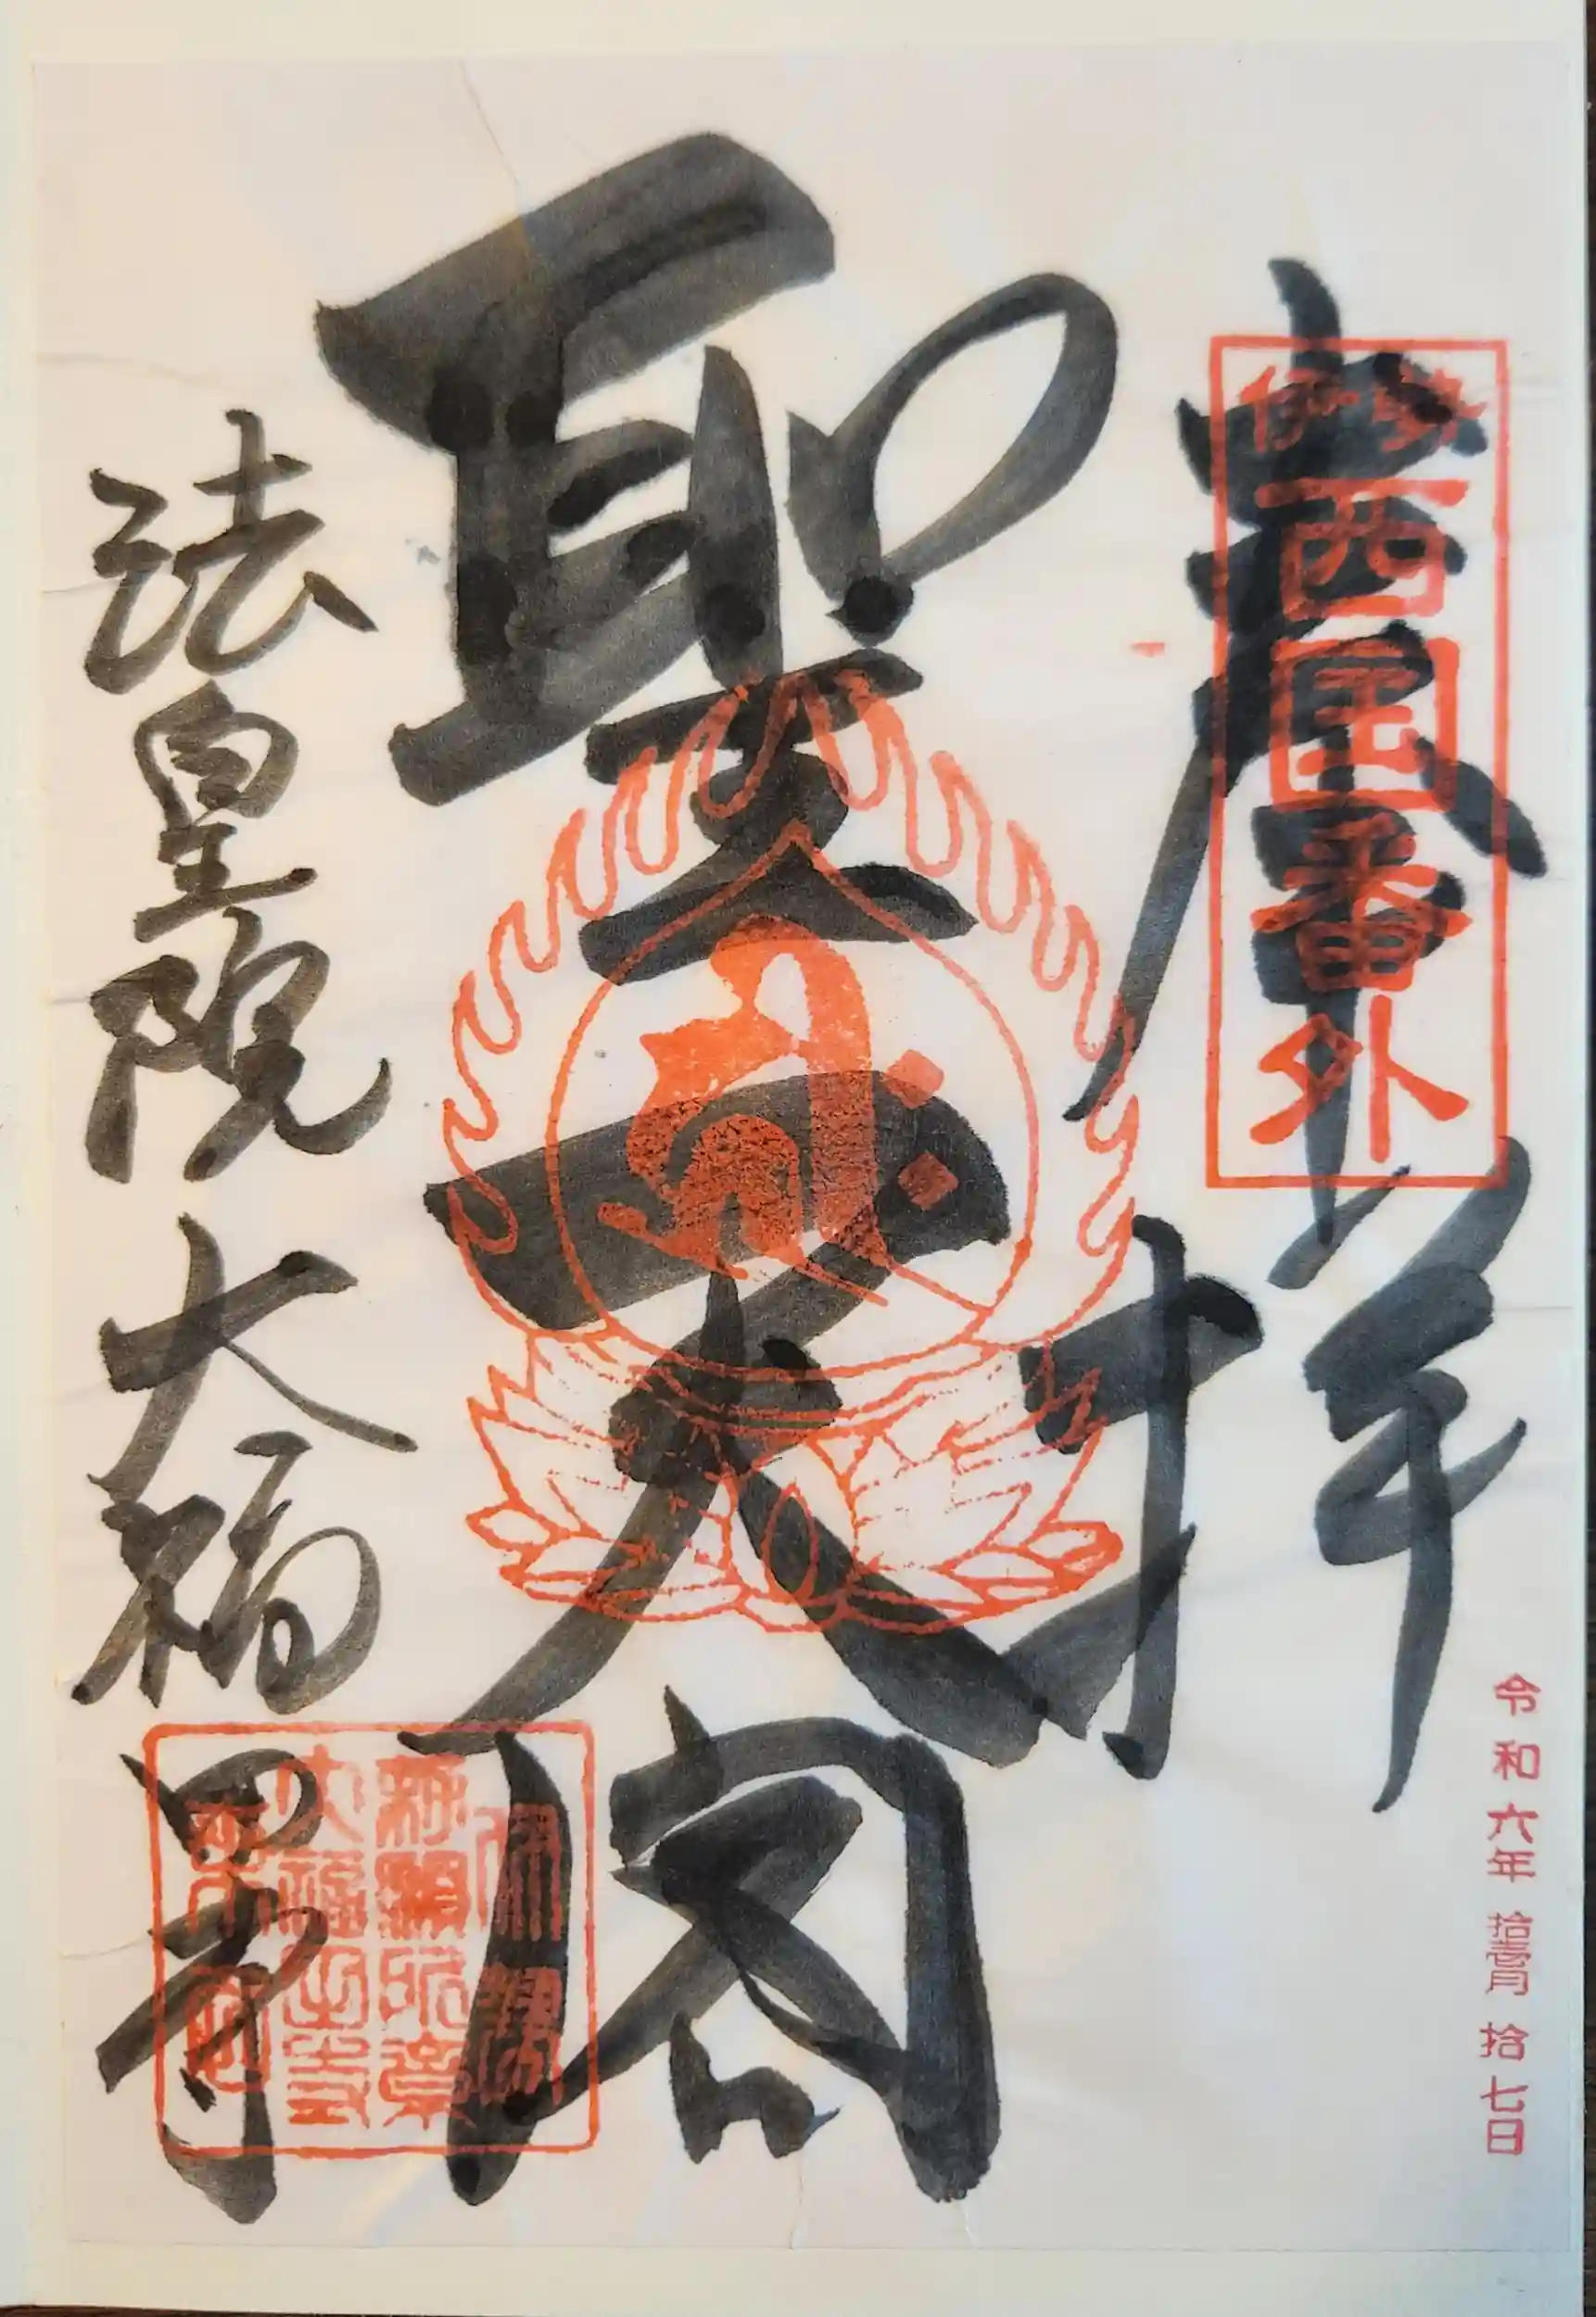 奉拝
伊勢西国番外
令和六年 拾壹月 拾七日
聖天閣
法皇院 大福田寺